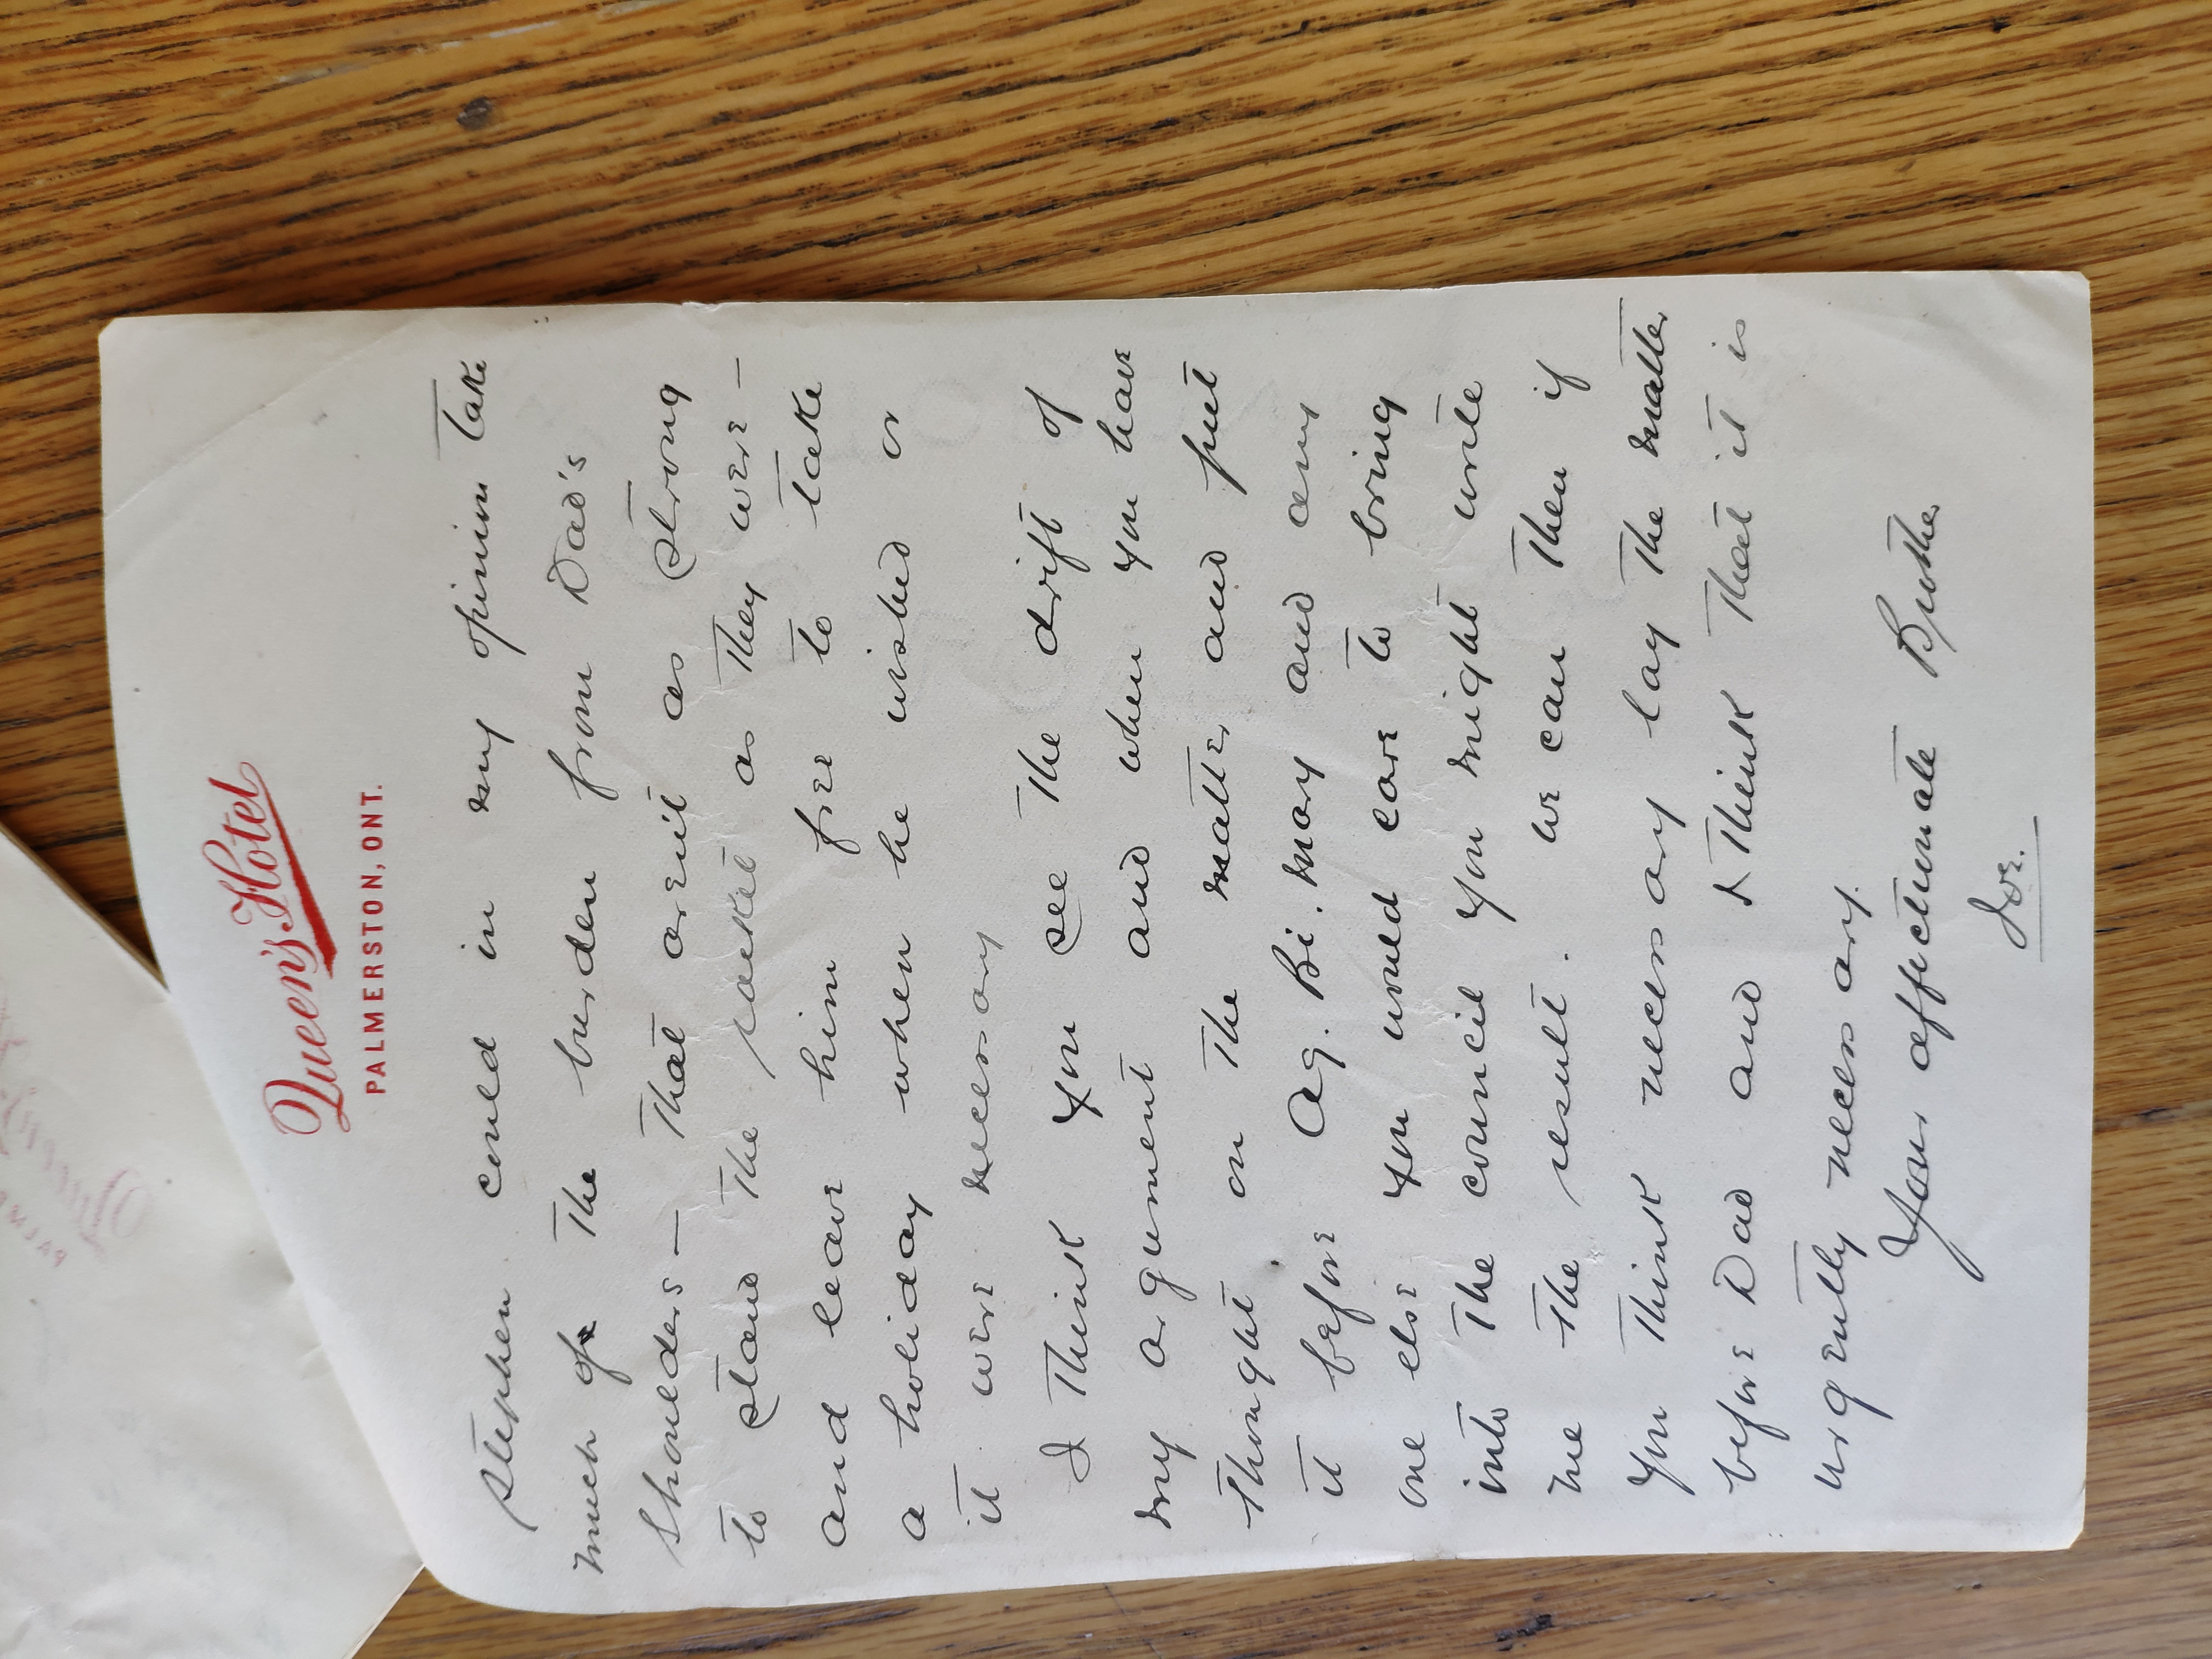 Queen's Hotel
PALMERSTON, ONT.
Stephen could in my opinion take
much of the burden from Dad's
shoulders — That arent as strong
to stand the racket as they were —
and leave him free to take
a holiday when he wished or
it were necessary
I think you see the drift of
my argument and when you have
thought on the matter and put
it before Ag. Bi. Mary and any
one else you would care to bring
into the council you might write
me the result. we can then if
you think necessary lay the matter
before Dad and I think that it is
urgently necessary.
Your affectionate Brother
Joe.